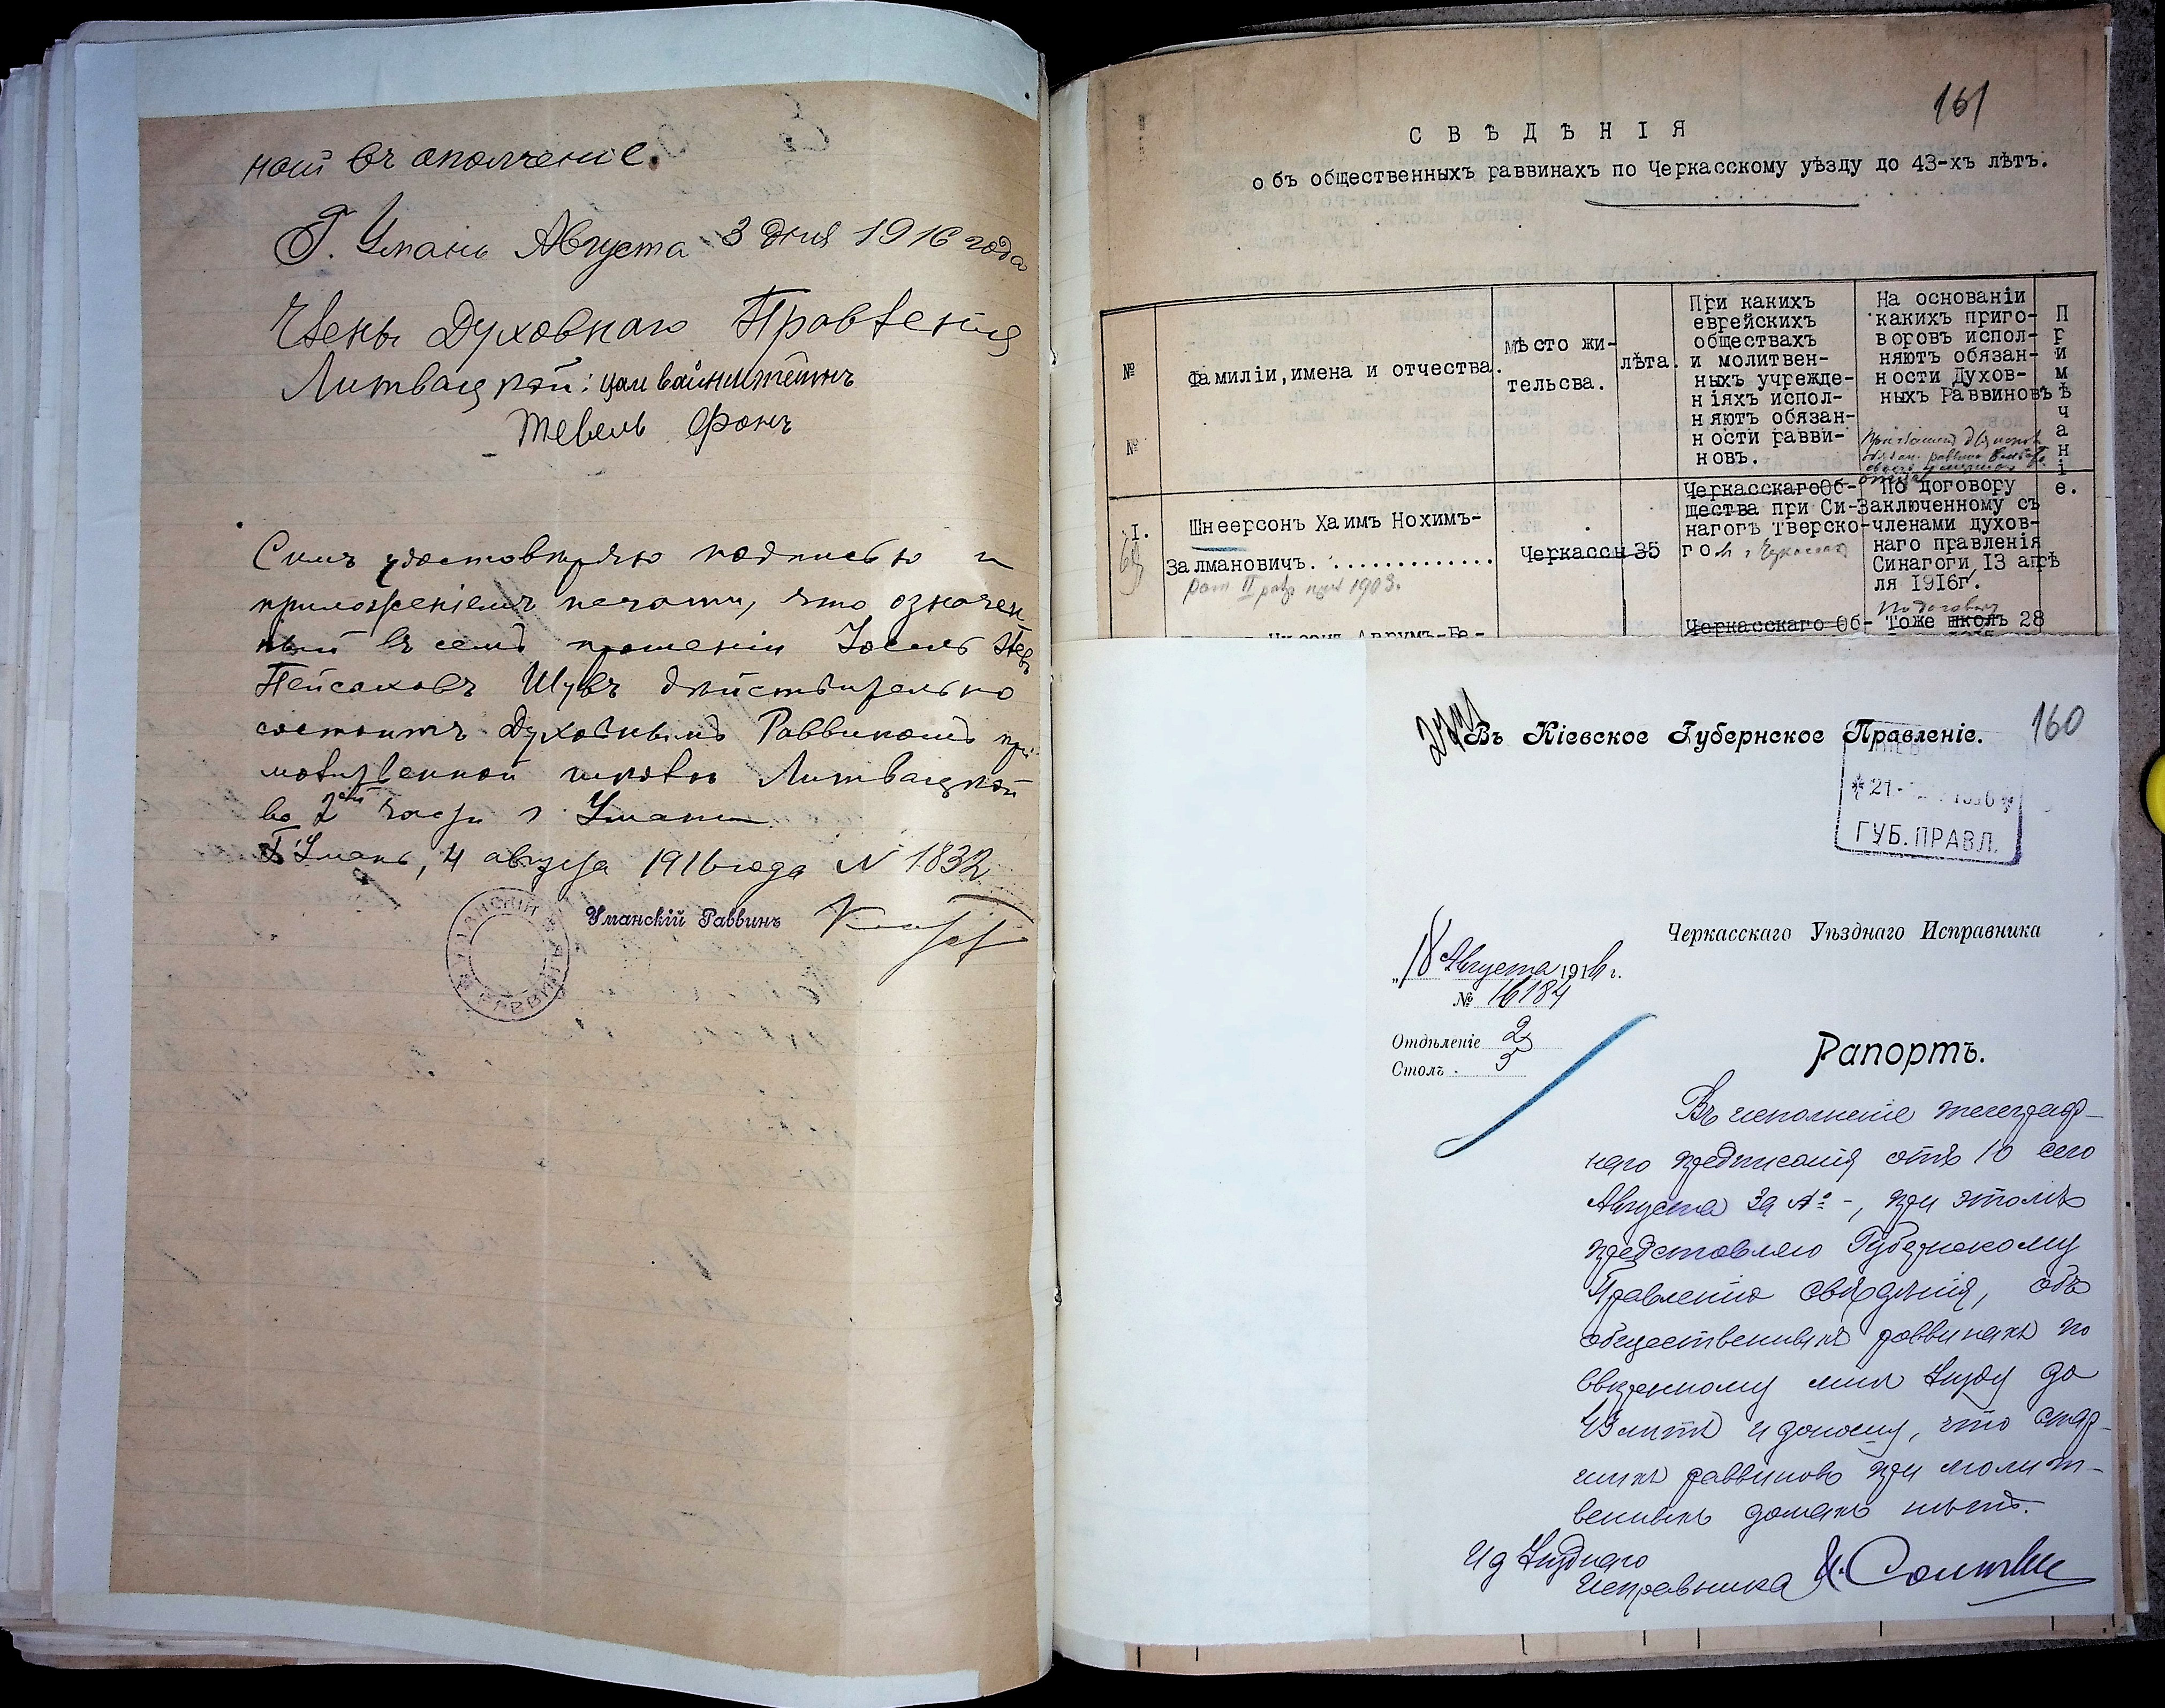 ной въ ополченіе.
Г. Умань Августа 3 дня 1916 года
Члены Духовнаго Правленія
Литвацкой: Цаи вайнштейнъ
Тевель Фонъ
Симъ удостовѣряю подписью и
приложеніемъ печати, что означен-
ный въ семъ прошеніи Іосель
Пейсаховъ Шувъ дѣйствительно
состоитъ Духовнымъ Раввиномъ при
молитвенной школѣ Литвацкой
во 2ой части г Умани
Г. Умань, 4 августа 1916 года N 1832
Уманскій Раввинъ
УМАНСКІЙ РАВВИНЪ
161
СВѢДѢНІЯ
объ общественныхъ раввинахъ по Черкасскому уѣзду до 43-хъ лѣтъ.
№ №
Фамиліи, имена и отчества.
мѣсто жи-
тельсва.
лѣта.
При какихъ
еврейскихъ
обществахъ
и молитвен-
ныхъ учрежде-
ніяхъ испол-
няютъ обязан-
ности равви-
новъ.
На основаніи
какихъ приго-
воровъ испол-
няютъ обязан-
ности Духов-
ныхъ Раввиновъ
Примѣчаніе.
I.
Шнеерсонъ Хаимъ Нохимъ-
Залмановичъ. .............
рат II разр 1903.
Черкассы
35
Черкасскаго Об-
щества при Си-
нагогѣ Тверско-
го г Черкассах
По договору
заключенному съ
членами духов-
наго правленія
Синагоги 13 апрѣ
ля 1916г.
Черкасскаго Об-
По договору
Тоже школъ 28
160
Въ Кіевское Губернское Правленіе.
*21
ГУБ. ПРАВЛ.
Черкасскаго Уѣзднаго Исправника
„18 Августа 1916 г.
№ 16184
Отдѣленіе 2
Столъ 3
Рапортъ.
Въ исполненіе телеграф-
наго предписанія отъ 10 сего
Августа за № -, при этомъ
представляю Губернскому
Правленію свѣдѣнія, объ
общественныхъ раввинахъ по
ввѣренному мнѣ уѣзду до
43 лѣтъ и доношу, что стар-
шихъ раввиновъ при молит-
венныхъ домахъ нѣтъ.
И д Уѣзднаго
Исправника